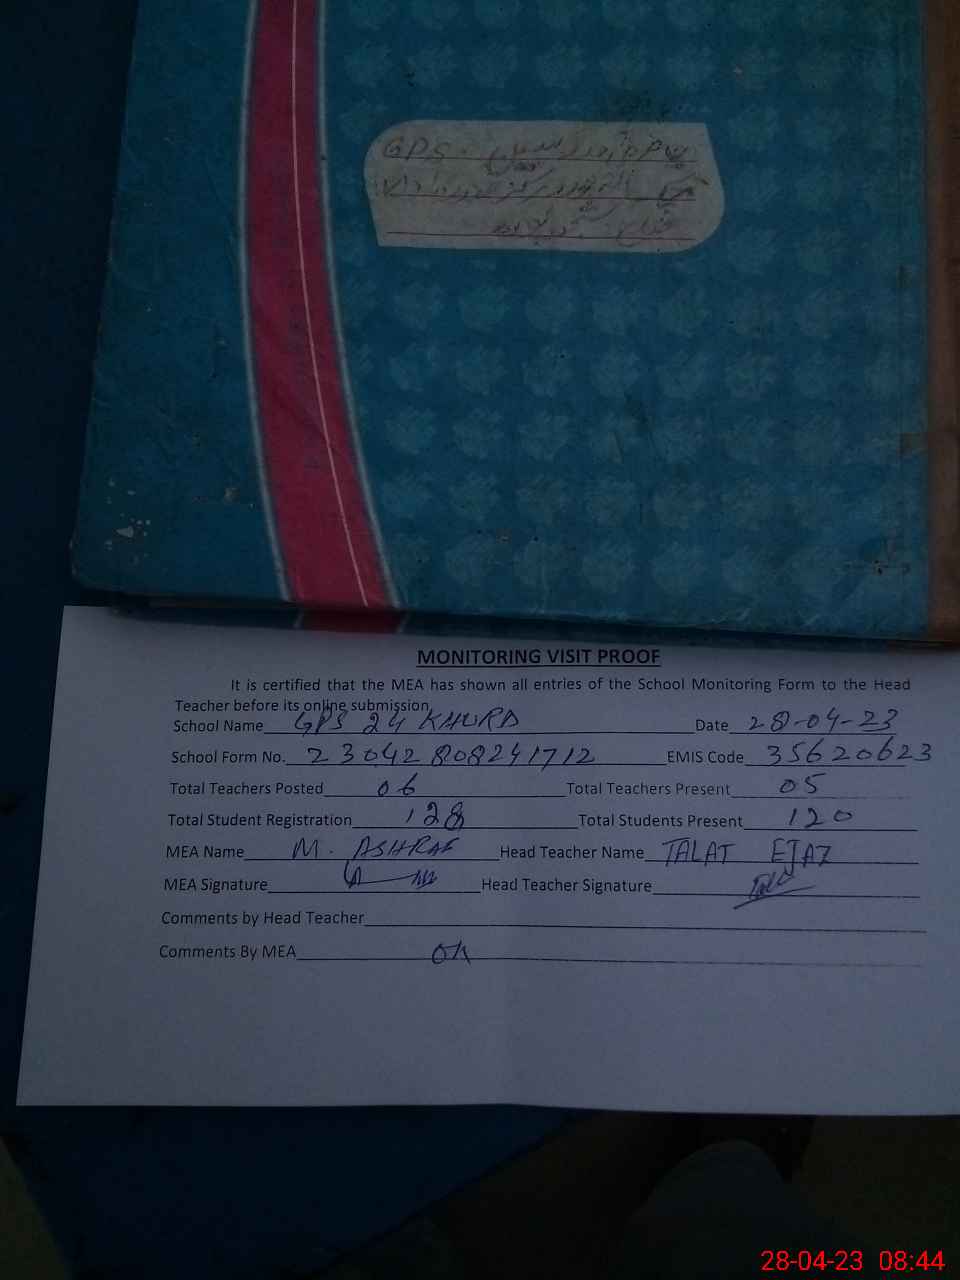 GPS
MONITORING VISIT PROOF
It is certified that the MEA has shown all entries of the School Monitoring Form to the Head
Teacher before its online submission.
School Name GPS 24 KHURD Date 28-04-23
School Form No. 23042808241712 EMIS Code 35620623
Total Teachers Posted 06 Total Teachers Present 05
Total Student Registration 128 Total Students Present 120
MEA Name M. ASHRAF Head Teacher Name TALAT EJAZ
MEA Signature Head Teacher Signature
Comments by Head Teacher
Comments By MEA OK
28-04-23 08:44